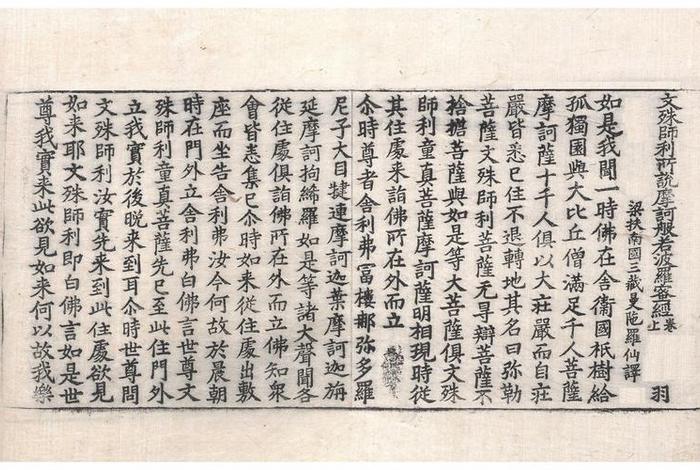 文殊師利所說摩訶般若波羅蜜經卷上 羽
梁扶南國三藏曼陁羅仙譯
如是我聞一時佛在舍衛國祇樹給
孤獨園與大比丘僧滿足千人菩薩
摩訶薩十千人俱以大莊嚴而自莊
嚴皆悉已住不退轉地其名曰弥勒
菩薩文殊師利菩薩无㝵辯菩薩不
捨擔菩薩與如是等大菩薩俱文殊
師利童真菩薩摩訶薩明相現時從
其住處来詣佛所在外而立
尒時尊者舍利弗富樓那弥多羅
尼子大目揵連摩訶迦葉摩訶迦旃
延摩訶拘絺羅如是等諸大聲聞各
從住處俱詣佛所在外而立佛知衆
會皆悉集已尒時如来從住處出敷
座而坐告舍利弗汝今何故於晨朝
時在門外立舍利弗白佛言世尊文
殊師利童真菩薩先已至此住門外
立我實於後晚来到耳尒時世尊問
文殊師利汝實先来到此住處欲見
如来耶文殊師利即白佛言如是世
尊我實来此欲見如来何以故我樂